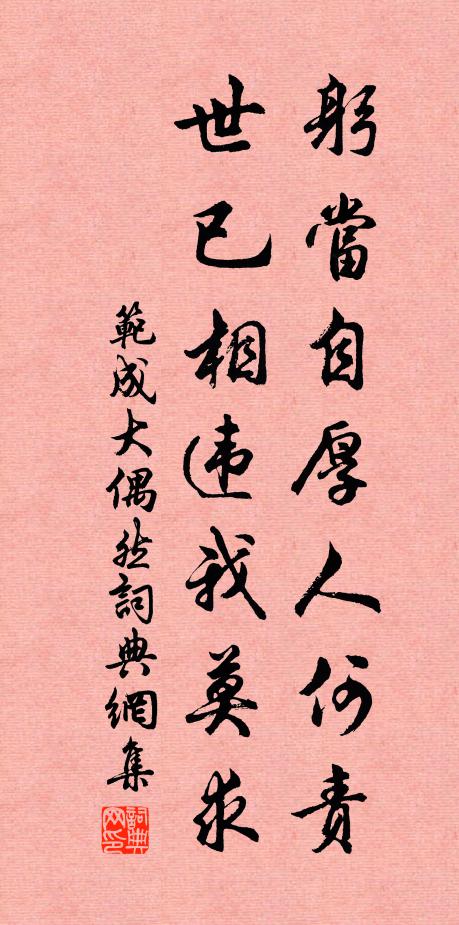 躬當自厚人何責
世已相违我莫求
範成大偶然詞典網集
詞典网印